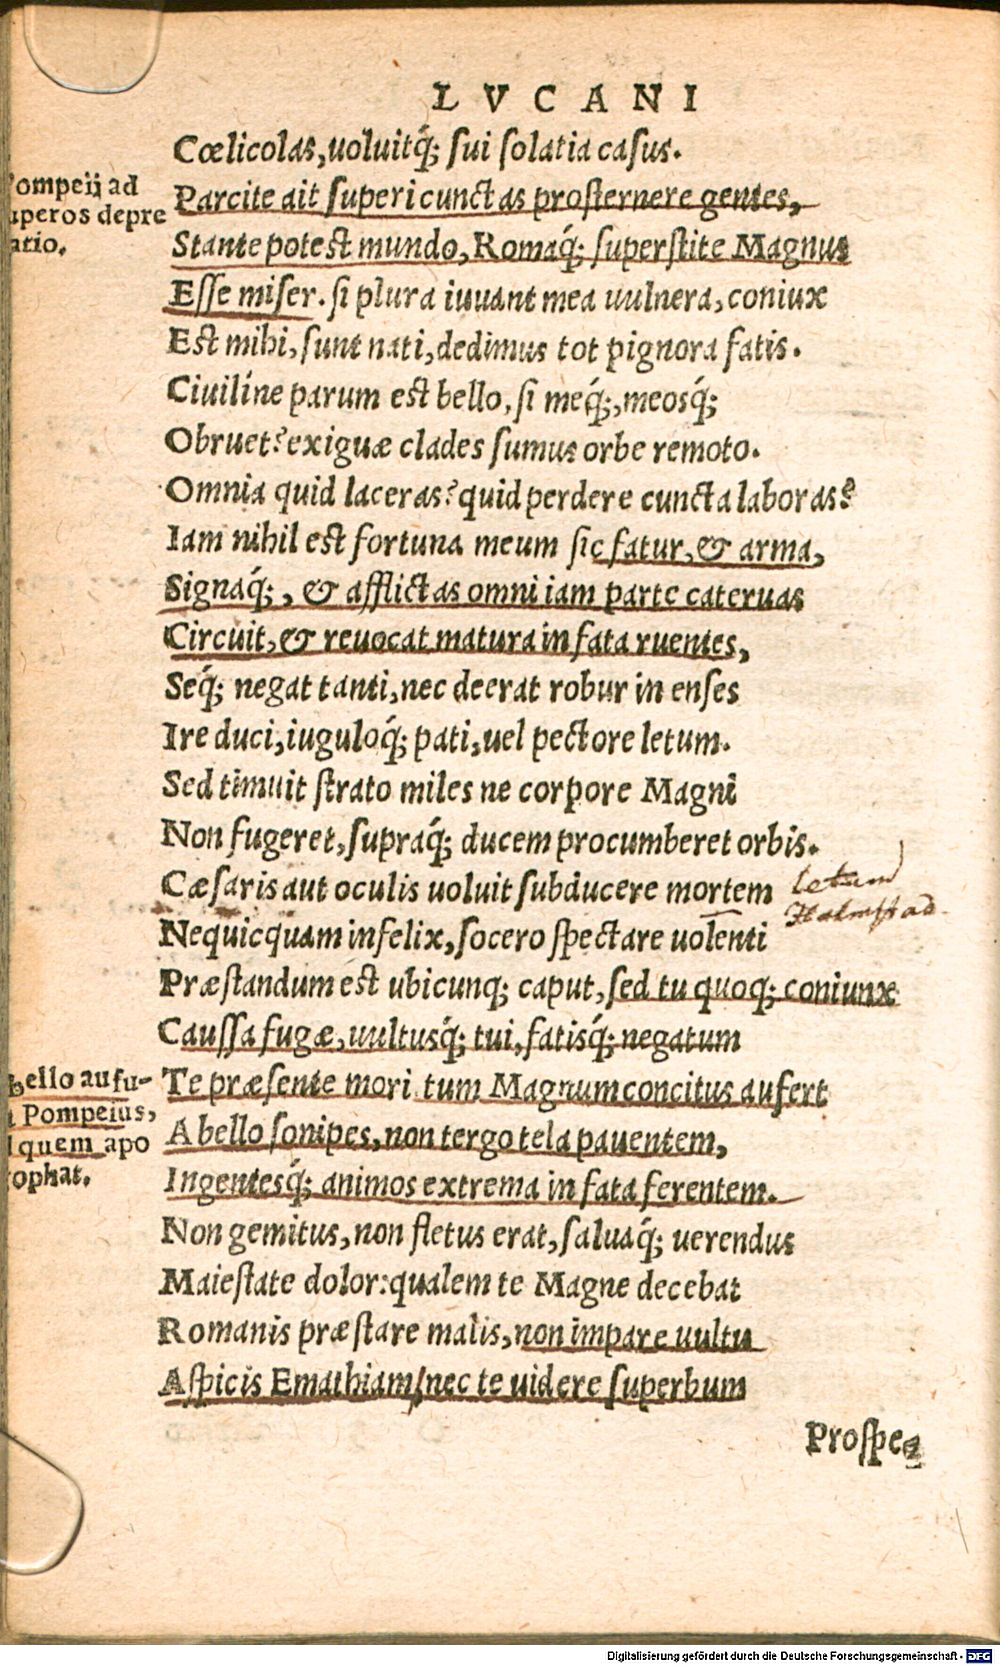 LVCANI
Cœlicolas, uoluitq́; sui solatia casus.
Pompeij ad
uperos depre
atio.
Parcite ait superi cunctas prosternere gentes,
Stante potest mundo, Romaq́; superstite Magnus
Esse miser. si plura iuuant mea uulnera, coniux
Est mihi, sunt nati, dedimus tot pignora fatis.
Ciuiline parum est bello, si meq́;, meosq́;
Obruet? exiguæ clades sumus orbe remoto.
Omnia quid laceras? quid perdere cuncta laboras?
Iam nihil est fortuna meum sic fatur, & arma,
Signaq́;, & afflictas omni iam parte cateruas
Circuit, & reuocat matura in fata ruentes,
Seq́; negat tanti, nec deerat robur in enses
Ire duci, iuguloq́; pati, uel pectore letum.
Sed timuit strato miles ne corpore Magni
Non fugeret, supraq́; ducem procumberet orbis.
Cæsaris aut oculis uoluit subducere mortem
letum
Nequicquam infelix, socero spectare uolenti
Præstandum est ubicunq; caput, sed tu quoq; coniunx
Caussa fugæ, uultusq́; tui, fatisq́; negatum
bello aufu-
t Pompeius,
d quem apo
rophat.
Te præsente mori. tum Magnum concitus aufert
A bello sonipes, non tergo tela pauentem,
Ingentesq́; animos extrema in fata ferentem.
Non gemitus, non fletus erat, saluaq́; uerendus
Maiestate dolor: qualem te Magne decebat
Romanis præstare malis, non impare uultu
Aspicis Emathiam, nec te uidere superbum
Prospe-
Digitalisierung gefördert durch die Deutsche Forschungsgemeinschaft - DFG